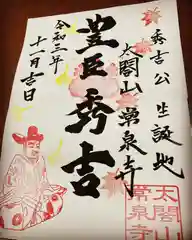 秀吉公生誕地
太閤山常泉寺
豊臣秀吉
令和三年
十一月吉日
太閤山
常泉寺